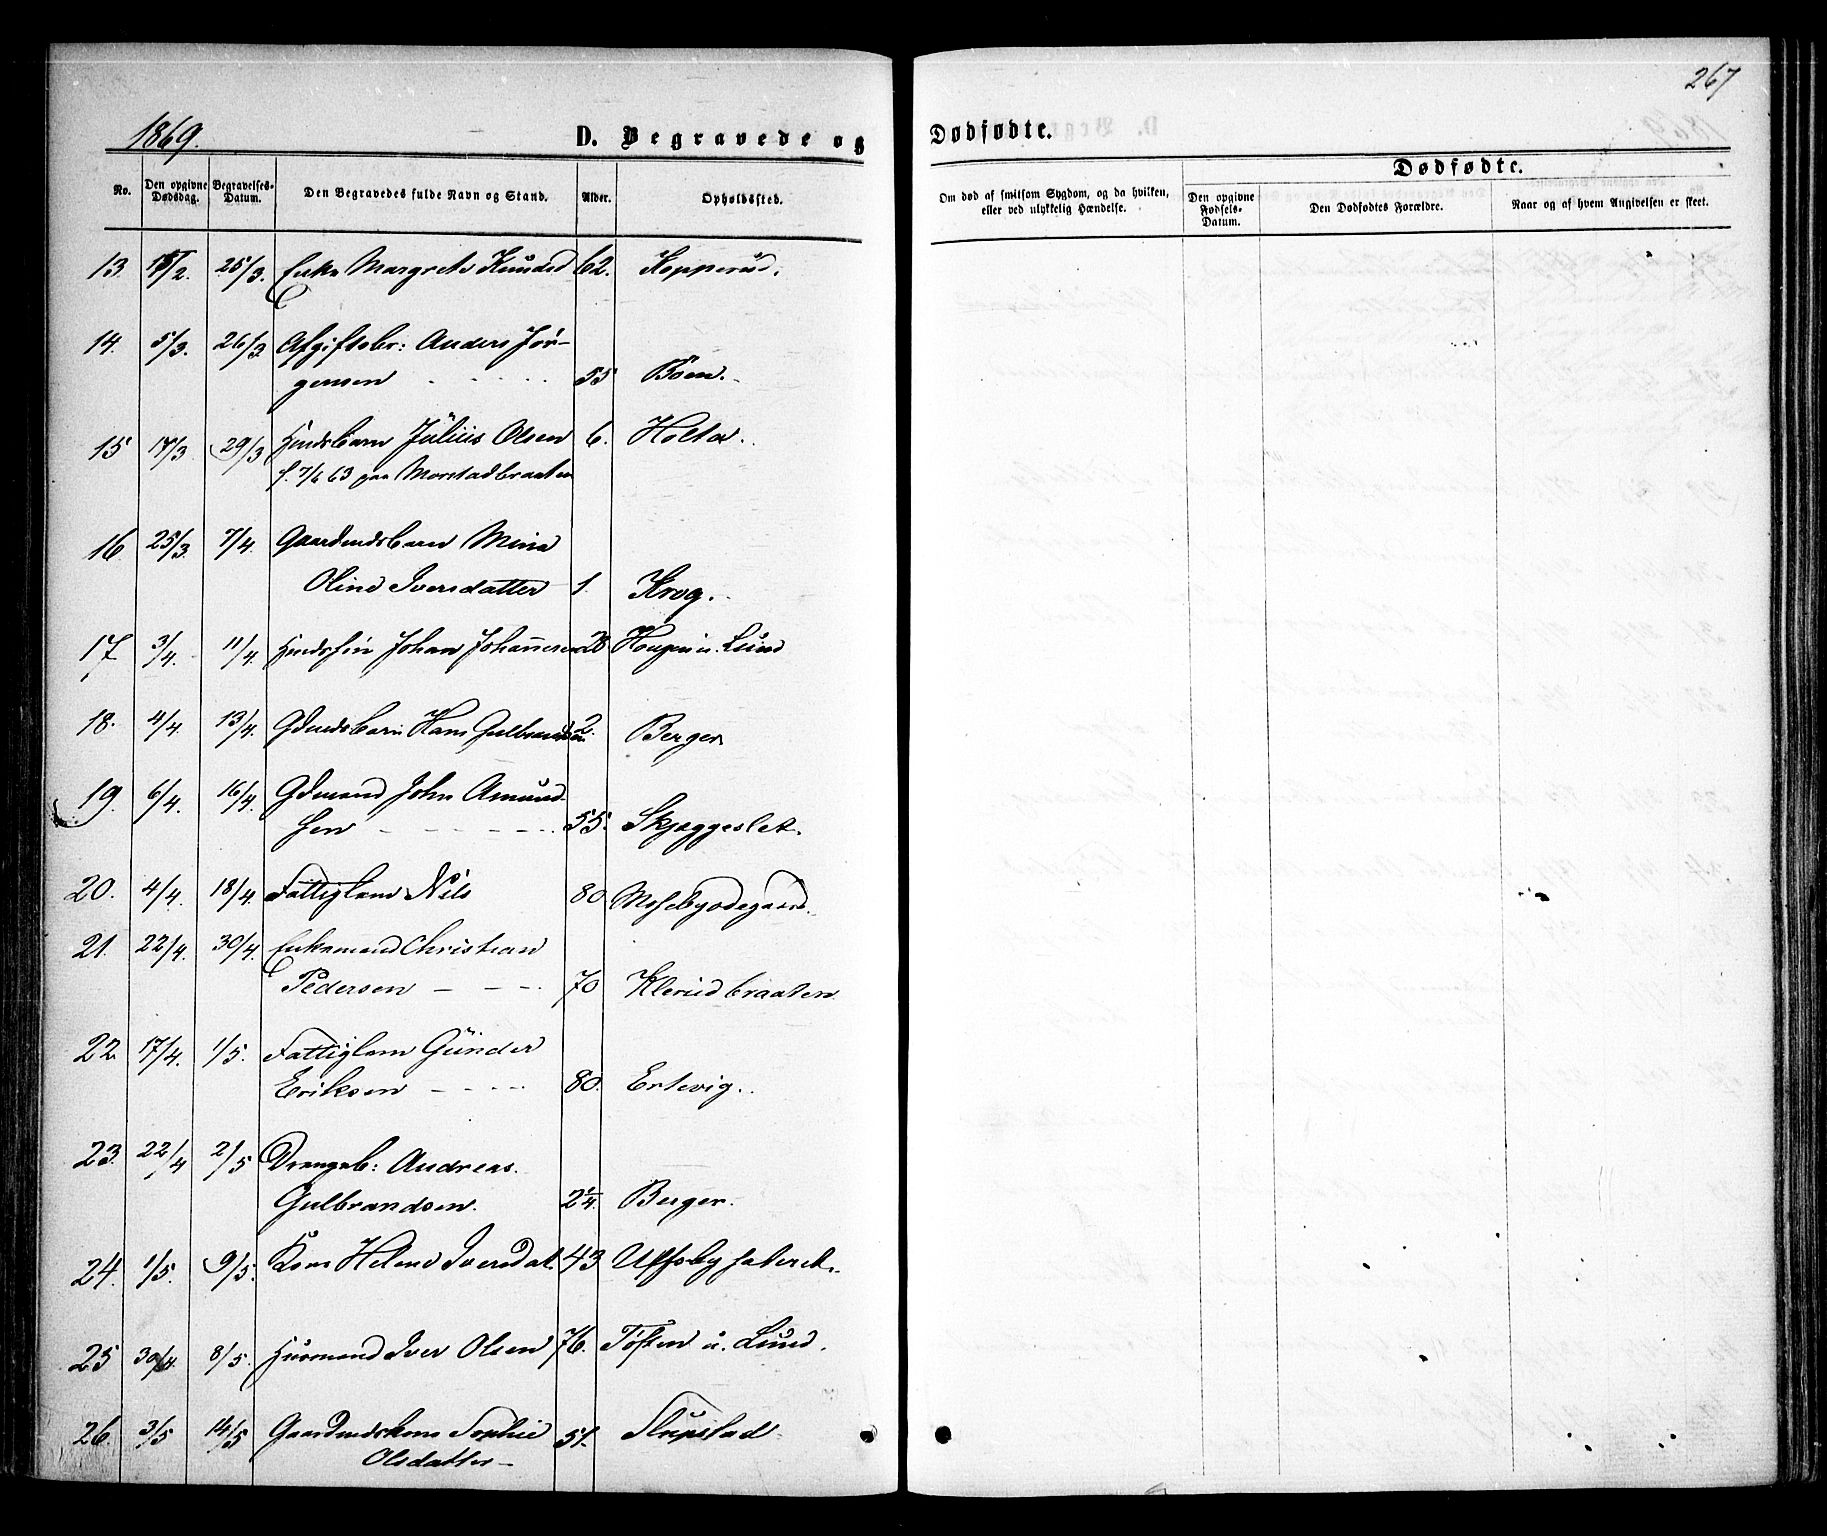 267
1869.
D. Begravede og Dødfødte.
No.
Den opgivne Dødsdag.
Begravelses-Datum.
Den Begravedes fulde Navn og Stand.
Alder.
Opholdssted.
Om død af smitsom Sygdom, og da hvilken, eller ved ulykkelig Hændelse.
Dødfødte.
Den opgivne Fødsels-Datum.
Den Dødfødtes Forældre.
Naar og af hvem Angivelsen er skeet.
13. 25/3. Enke Margrete Knudsd 62. Kopperud.
14. 5/3. 26/3 Afgiftsbr: Anders Jör-
gensen 55 Boen.
15 17/3 29/3 Hmdsbarn Julius Olsen 6. Holta.
f. 7/6 63 paa Morstadbraaten
16 25/3. 7/4. Gaardmdsbarn Mina
Oline Iversdatter 1. Krog.
17 3/4. 11/4. Johan Johannesen 28 Haugen u. Lund
18. 4/4. 13/4. Gdmdsbarn Hans Gulbrandsen 2. Berger
19. 6/4. 16/4. Gdmand John Amund-
sen 55. Skjæggeslet.
20. 4/4. 18/4. Fattiglem Nils 80 Mosebyødegaard.
21. 22/4. 30/4. Enkemand Christian
Pedersen 70 Klerudbraaten
22 17/4. 1/5. Fattiglem Gunder
Eriksen 80. Ertevig.
23. 22/4 2/5 Drengeb: Andreas
Gulbrandsen. 2 1/4. Berger.
24. 1/5. 9/5. Kone Helene Iversdat. 43
25 30/4. 8/5. Husmand Iver Olsen 76. Toften u. Lund.
26. 3/5 14/5 Gaardmdskone Sophie 51. Slupstad
Olsdatter